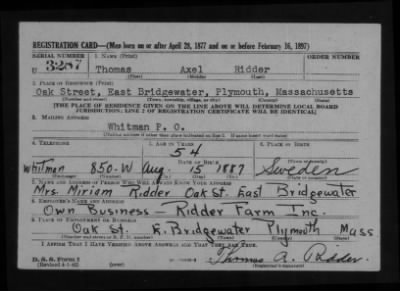 REGISTRATION CARD—(Men born on or after April 28, 1877 and on or before February 16, 1897)
SERIAL NUMBER 1. NAME (Print) ORDER NUMBER
U 3287 Thomas Axel Ridder
(First) (Middle) (Last)
2. PLACE OF RESIDENCE (Print)
Oak Street, East Bridgewater, Plymouth, Massachusetts
(Number and street) (Town, township, village, or city) (County) (State)
[THE PLACE OF RESIDENCE GIVEN ON THE LINE ABOVE WILL DETERMINE LOCAL BOARD
JURISDICTION; LINE 2 OF REGISTRATION CERTIFICATE WILL BE IDENTICAL]
3. MAILING ADDRESS
Whitman P. O.
[Mailing address if other than place indicated on line 2. If same insert word same]
4. TELEPHONE 5. AGE IN YEARS 6. PLACE OF BIRTH
54
DATE OF BIRTH
Whitman 850-W Aug. 15 1887 Sweden
(Exchange) (Number) (Mo.) (Day) (Yr.) (State or country)
7. NAME AND ADDRESS OF PERSON WHO WILL ALWAYS KNOW YOUR ADDRESS
Mrs. Miriam Ridder Oak St. East Bridgewater
8. EMPLOYER'S NAME AND ADDRESS
Own Business — Ridder Farm Inc.
9. PLACE OF EMPLOYMENT OR BUSINESS
Oak St. E. Bridgewater Plymouth Mass
(Number and street or R. F. D. number) (Town) (County) (State)
I AFFIRM THAT I HAVE VERIFIED ABOVE ANSWERS AND THAT THEY ARE TRUE.
D. S. S. Form 1
(Revised 4-1-42) (over)
Thomas A. Ridder
(Registrant's signature)